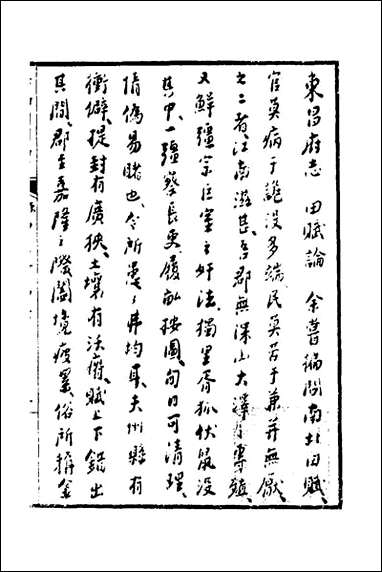 東昌府志 田賦論 余嘗徧閱南北田賦、
官莫病于詭沒多端、民莫苦于兼并無厭、
之二者、江南滋甚、吾郡無深山大澤主專鎮、
又鮮疆宗巨室之奸法、獨里胥狐伏鼠沒
其中、一彊察長吏履畝按圖、旬日可清理、
情偽易睹也、今所患者弗均耳、夫州縣有
衝僻、提封有廣狹、土壤有沃瘠、賦上下錯出
其間、郡至嘉隆之際闔境疲累、俗所稱金